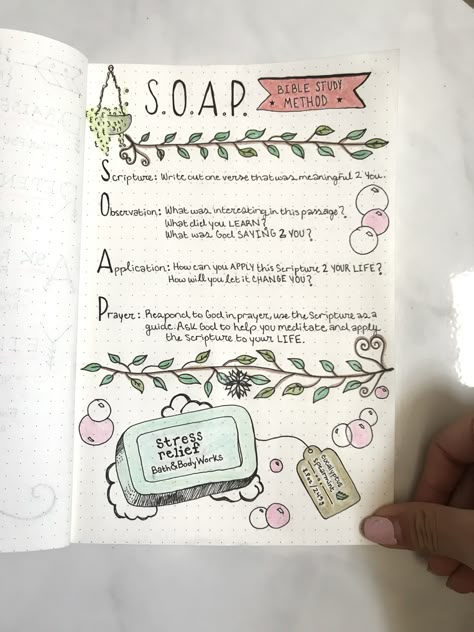 S.O.A.P.
BIBLE STUDY
METHOD
Scripture: Write out one verse that was meaningful 2 you.
Observation: What was interesting in this passage?
What did you LEARN?
What was God SAYING 2 YOU?
Application: How can you APPLY this Scripture 2 YOUR LIFE?
How will you let it CHANGE YOU?
Prayer: Respond to God in prayer, use the Scripture as a
guide. Ask God to help you meditate and apply
the Scripture to your LIFE.
stress
relief
Bath&BodyWorks
eucalyptus
spearmint